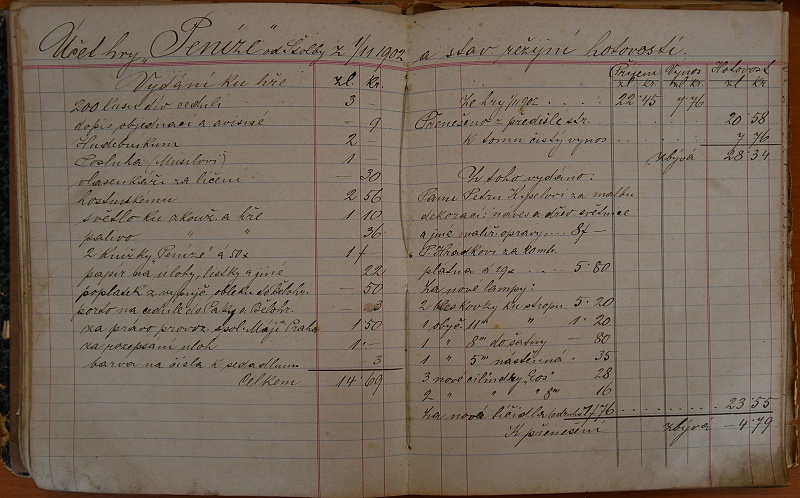 Účet hry „Peníze" od Štolby z 1/11 1902 a stav režijní hotovosti.
Vydání ku hře zl. kr.
200 lust. div. cedulí 3 –
dopis, objednací a avisné – 9
Hudebníkům 2 –
Posluha (Musilovi) 1 –
vlasenkáři za líčení – 30
hostinskému 2 56
světlo ku zkouš. a hře 1 10
palivo " " 36
2 knížky „Peníze" á 50 x 1 –
papír na úlohy, lístky a jiné 22
poplatek z vypůjč. obleku do Bělohr. – 50
porto na cedule do Paky a Bělohr. – 3
za právo provoz. spol. Máji Praha 1 50
za rozepsání úloh 1 –
barva na čísla k sedadlům 3
Celkem 14 69
Příjem Výnos Hotovost
zl. kr. zl. kr. zl. kr.
Ze hry 1/11 902 . . . . 22 45 7 76
Přenešeno z předešlé str. 20 58
k tomu čistý výnos 7 76
zbývá 28 34
Z toho vydáno:
Panu Petru Kyselovi za malbu
dekorací: náves a dřev. světnice
a jiné malíř. opravy, . . 8 –
P. Hradkovi za
plátna á 29 x . . . . 5·80
Za nové lampy:
2 bleskovky ku stropu 5·20
1 obyč. 11''' " 1·20
1 " 8''' do šatny – 80
1 " 5''' nástěnná · 35
3 nové cilindry „Eos" 28
2 " " " 8''' 16
Za nová líčidla 1/76 . . . . . . . 23·55
K přenešení zbývá – 4·79